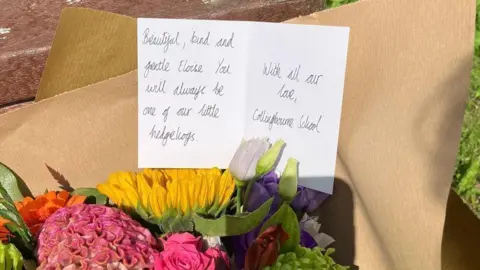 Beautiful, kind and
gentle Eloise You
will always be
one of our little
hedgehogs.
With all our
love,
Collingbourne School